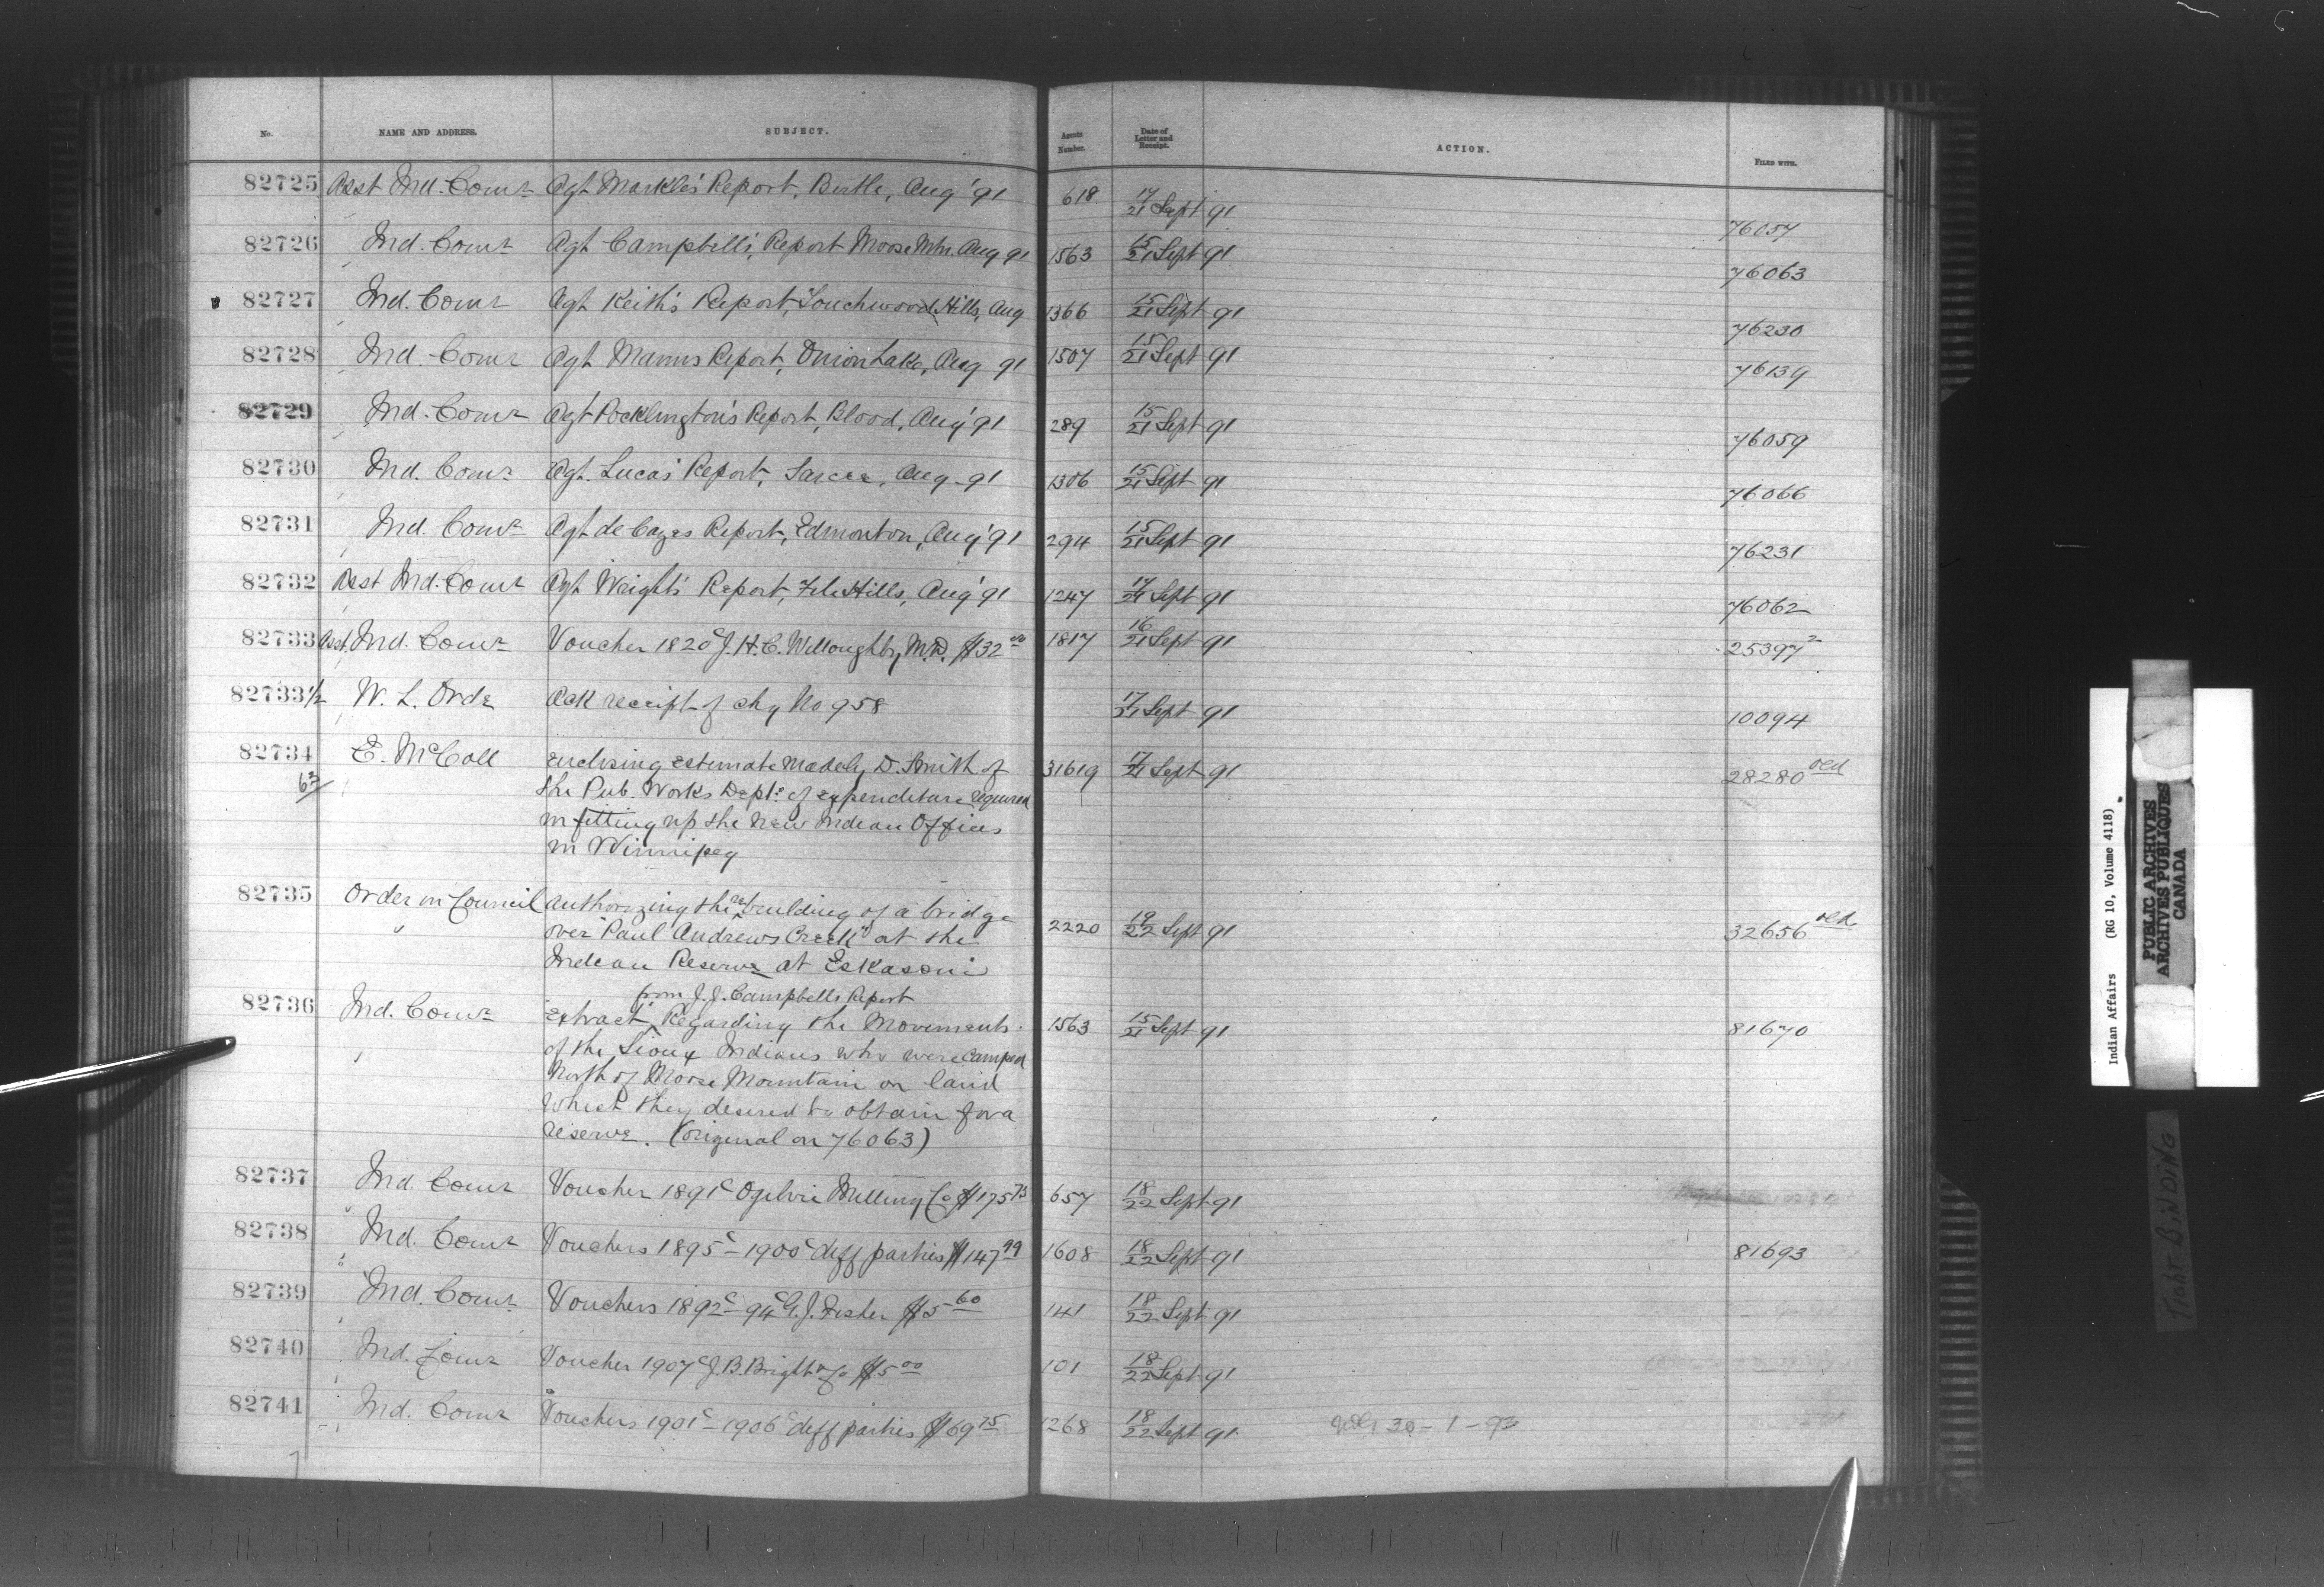 No. NAME AND ADDRESS. SUBJECT. Agents Number. Date of Letter and Receipt. ACTION. FILED WITH.
82725 Asst Ind. Comr Agt Markle's Report, Birtle, Aug '91 618 17/21 Sept 91 76057
82726 Ind. Comr Agt Campbell's, Report Moose Mtn. Aug 91 1563 15/21 Sept 91 76063
82727 Ind. Comr Agt Keith's Report, Touchwood Hills, Aug 1366 15/21 Sept 91 76230
82728 Ind. Comr Agt Manns Report, Onion Lake, Aug 91 1507 15/21 Sept 91 76139
82729 Ind. Comr Agt Pocklington's Report, Blood, Aug '91 289 15/21 Sept 91 76059
82730 Ind. Comr Agt. Lucas' Report, Sarcee, Aug - 91 1306 15/21 Sept 91 76066
82731 Ind. Comr Agt de Cazes Report, Edmonton, Aug '91 294 15/21 Sept 91 76231
82732 Asst Ind. Comr Agt Wright's Report, File Hills, Aug '91 1247 17/21 Sept 91 76062
82733 Asst. Ind. Comr Voucher 1820c J. H. C. Willoughby M.D. $32 00 1817 16/21 Sept 91 25397 2
82733 1/2 W. L. Orde Ack receipt of chq No 958 17/21 Sept 91 10094
82734 E. McColl Enclosing estimate made by D. Smith of 31619 17/21 Sept 91 28280 oed
63 the Pub. Works Dept. of expenditure required
in fitting up the new Indian Offices
in Winnipeg
82735 Order in Council authorizing the re building of a bridge
" over "Paul Andrews Creek" at the 2220 19/22 Sept 91 32656 oed
Indian Reserve at Eskasoni
from J. J. Campbells Report
82736 Ind. Comr "Extract" Regarding the Movements 1563 15/21 Sept 91 81670
of the Sioux Indians who were camped
North of Moose Mountain on land
which they desired to obtain for a
reserve. (original on 76063)
82737 Ind. Comr Voucher 1891c Ogilvie Milling Co $175 73 657 18/22 Sept 91
82738 Ind. Comr Vouchers 1895c - 1900c diff parties $147 99 1608 18/22 Sept 91 81693
82739 Ind. Comr Vouchers 1892c - 94c G. J. Fisher $5 60 141 18/22 Sept 91
82740 Ind. Comr Voucher 1907c J. B. Bright & Co $5 00 101 18/22 Sept 91
82741 Ind. Comr Vouchers 1901c - 1906c diff parties $69 75 1268 18/22 Sept 91 30 - 1 - 93
Indian Affairs (RG 10, Volume 4118)
PUBLIC ARCHIVES
ARCHIVES PUBLIQUES
CANADA
TIGHT BINDING